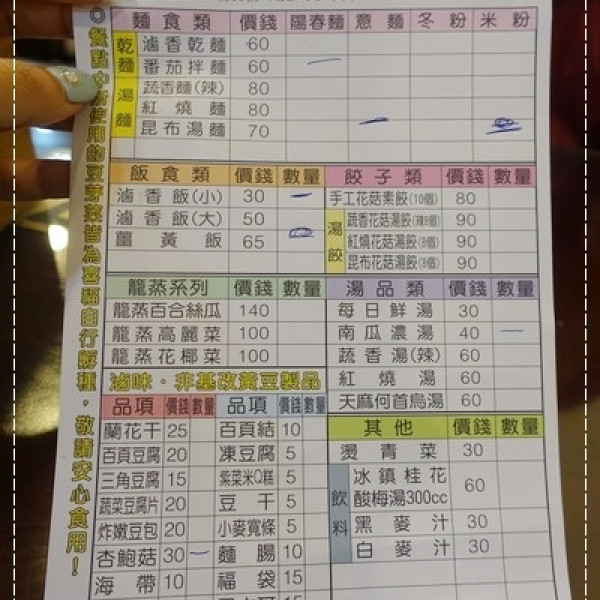 ◎餐點中所使用的豆芽菜皆為喜福自行孵種，敬請安心食用！
麵食類 價錢 陽春麵 意麵 冬粉 米粉
乾麵
滷香乾麵 60
番茄拌麵 60
湯麵
蔬香麵(辣) 80
紅燒麵 80
昆布湯麵 70
飯食類 價錢 數量
滷香飯(小) 30
滷香飯(大) 50
薑黃飯 65
餃子類 價錢 數量
手工花菇素餃(10個) 80
湯餃
蔬香花菇湯餃(辣8個) 90
紅燒花菇湯餃(8個) 90
昆布花菇湯餃(8個) 90
龍蒸系列 價錢 數量
龍蒸百合絲瓜 140
龍蒸高麗菜 100
龍蒸花椰菜 100
湯品類 價錢 數量
每日鮮湯 30
南瓜濃湯 40
蔬香湯(辣) 60
紅燒湯 60
天麻何首烏湯 60
滷味．非基改黃豆製品
品項 價錢 數量 品項 價錢 數量
蘭花干 25 百頁結 10
百頁豆腐 20 凍豆腐 5
三角豆腐 15 紫菜米Q糕 5
蔬菜豆腐片 20 豆干 5
炸嫩豆包 20 小麥寬條 5
杏鮑菇 30 麵腸 10
海帶 10 福袋 15
其他 價錢 數量
燙青菜 30
飲料
冰鎮桂花酸梅湯300cc 60
黑麥汁 30
白麥汁 30